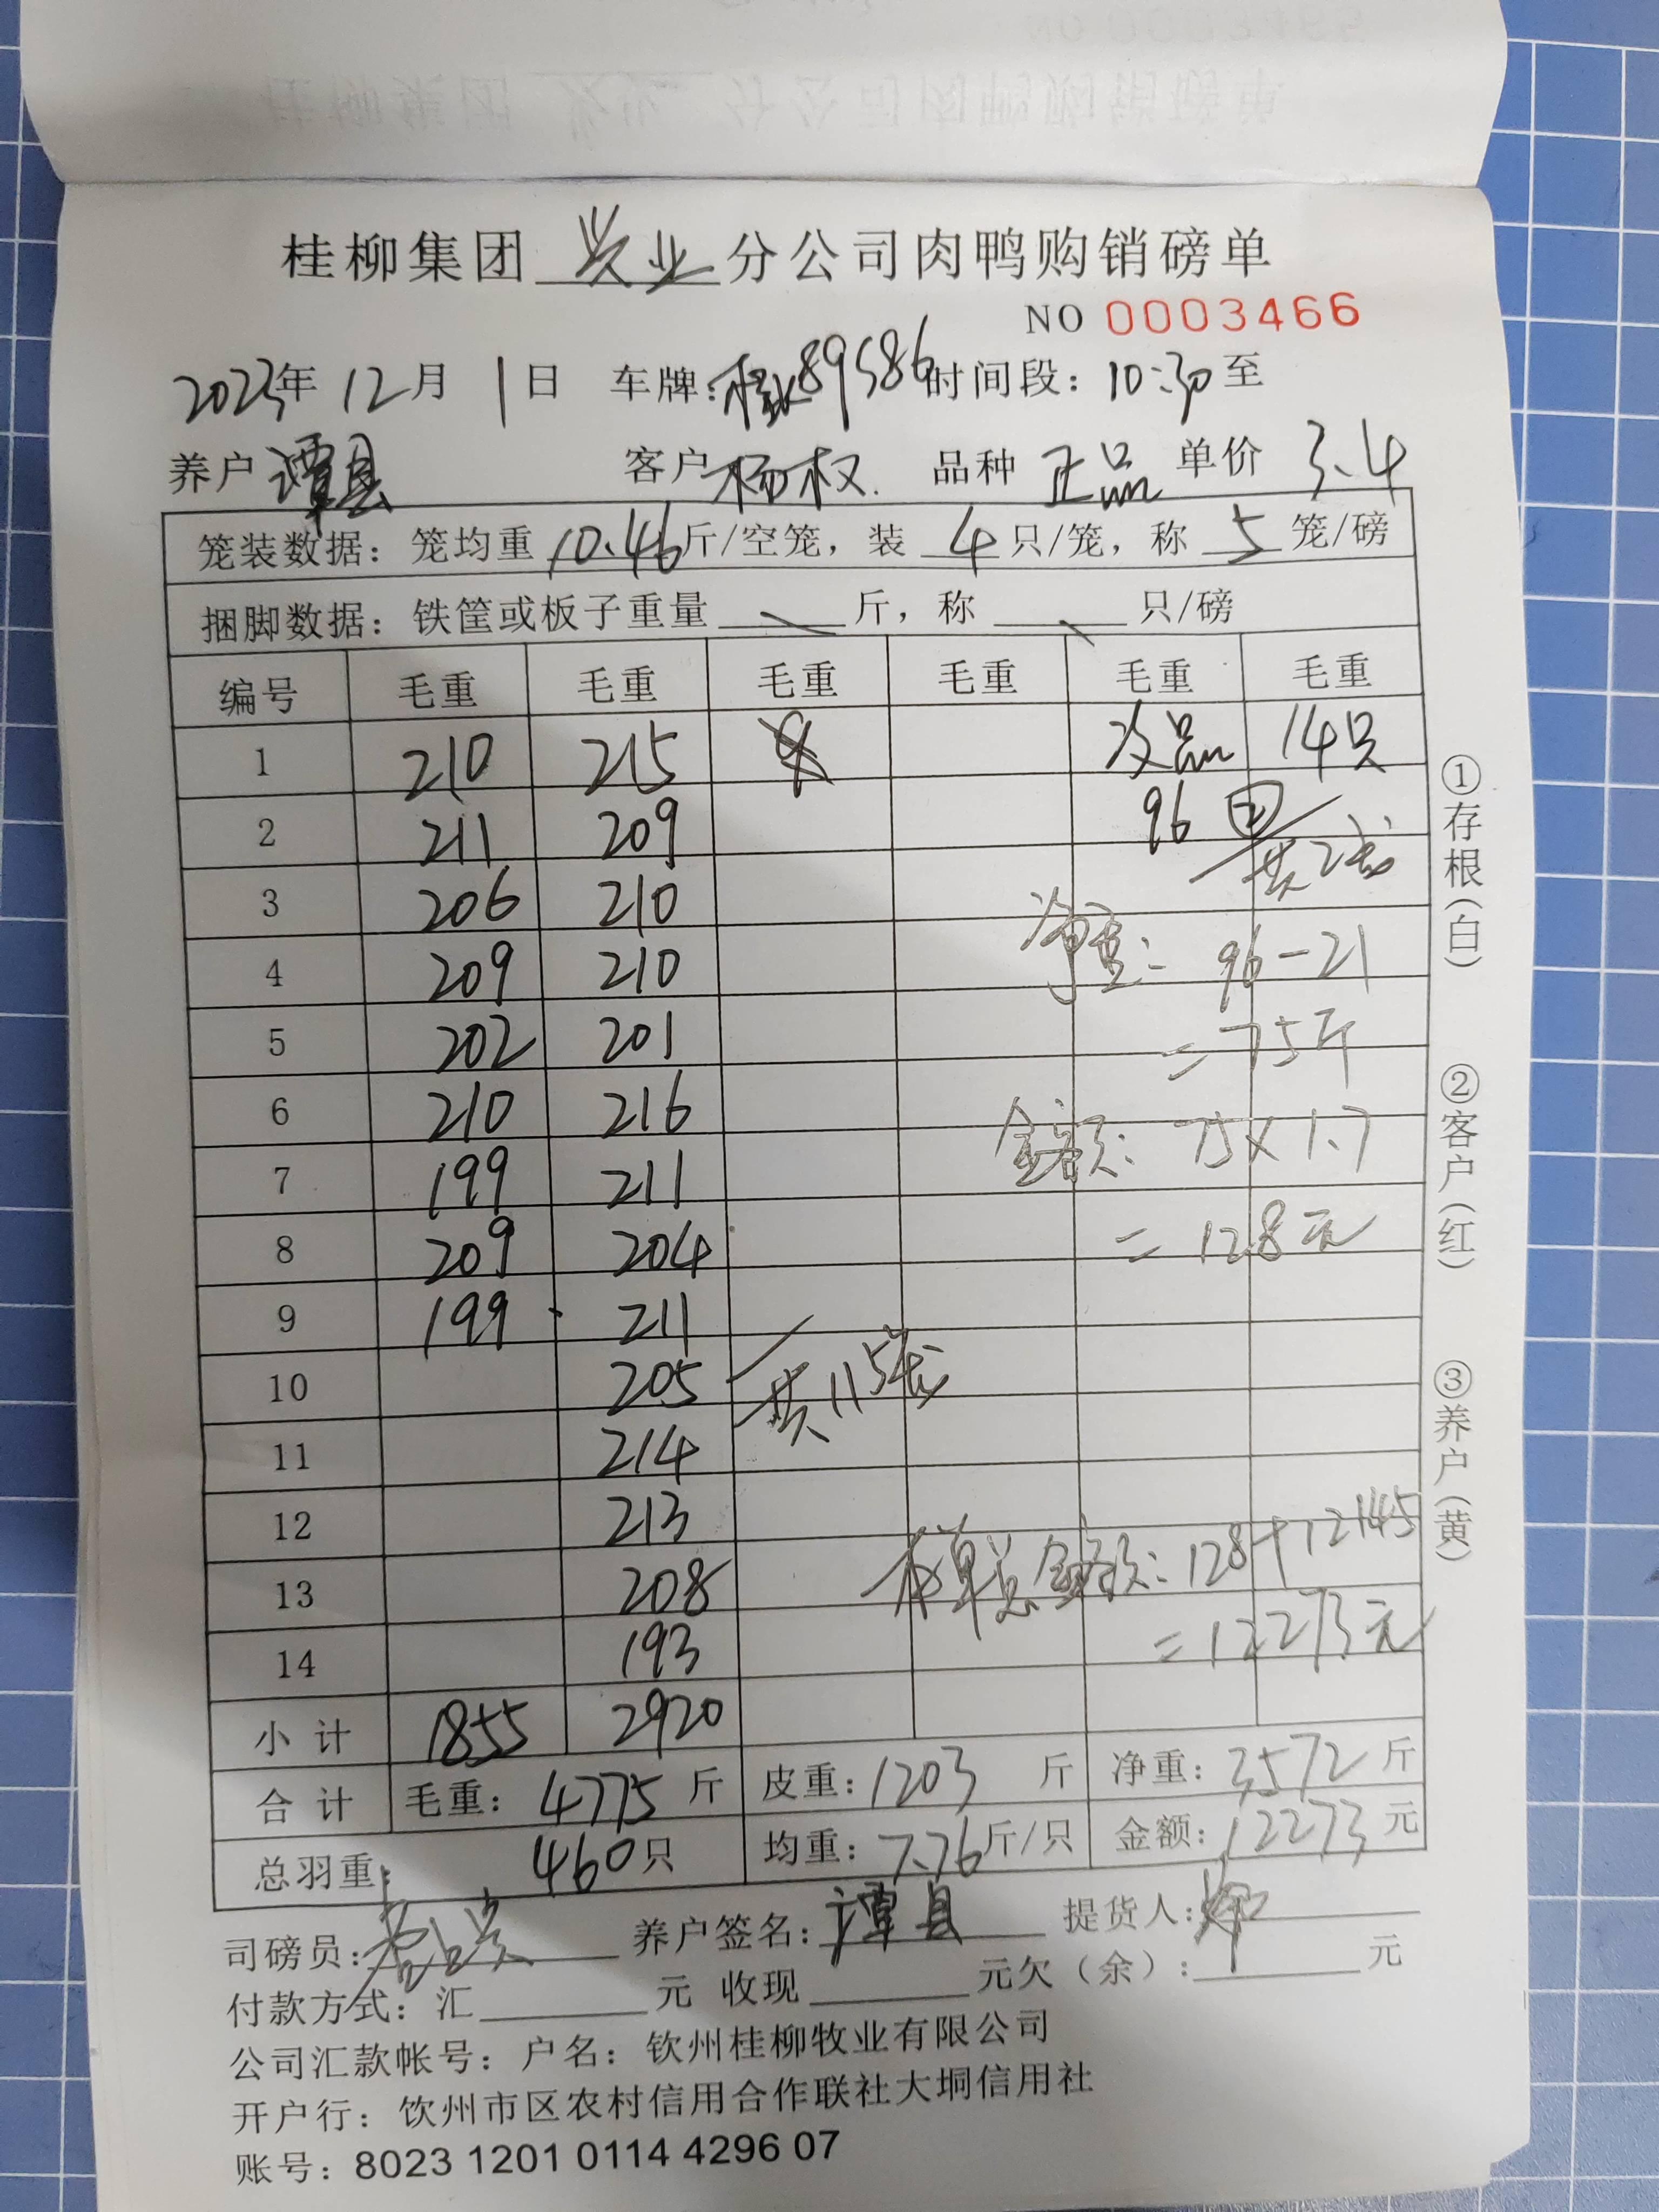 桂柳集团 兴业 分公司肉鸭购销磅单
NO 0003466
2023年 12月 1日 车牌: 桂K89586 时间段: 10:30 至
养户 谭县 客户 杨权 品种 正品 单价 3.4
笼装数据: 笼均重 10.46 斤/空笼, 装 4 只/笼, 称 5 笼/磅
捆脚数据: 铁筐或板子重量 斤, 称 只/磅
编号 毛重 毛重 毛重 毛重 毛重 毛重
1 210 215 次品 14只
2 211 209 96 共2笼
3 206 210
4 209 210 净重: 96-21
5 202 201 =75斤
6 210 216 金额: 75×1.7
7 199 211
8 209 204 =128元
9 199 211
10 205 共115笼
11 214
12 213
13 208 本单总金额: 128+12145
14 193 =12273元
小计 1855 2920
合计 毛重: 4775 斤 皮重: 1203 斤 净重: 3572 斤
总羽重: 460只 均重: 7.76斤/只 金额: 12273 元
司磅员: 养户签名: 谭县 提货人:
付款方式: 汇 元 收现 元欠(余): 元
公司汇款帐号: 户名: 钦州桂柳牧业有限公司
开户行: 钦州市区农村信用合作联社大垌信用社
账号: 8023 1201 0114 4296 07
①存根(白)
②客户(红)
③养户(黄)